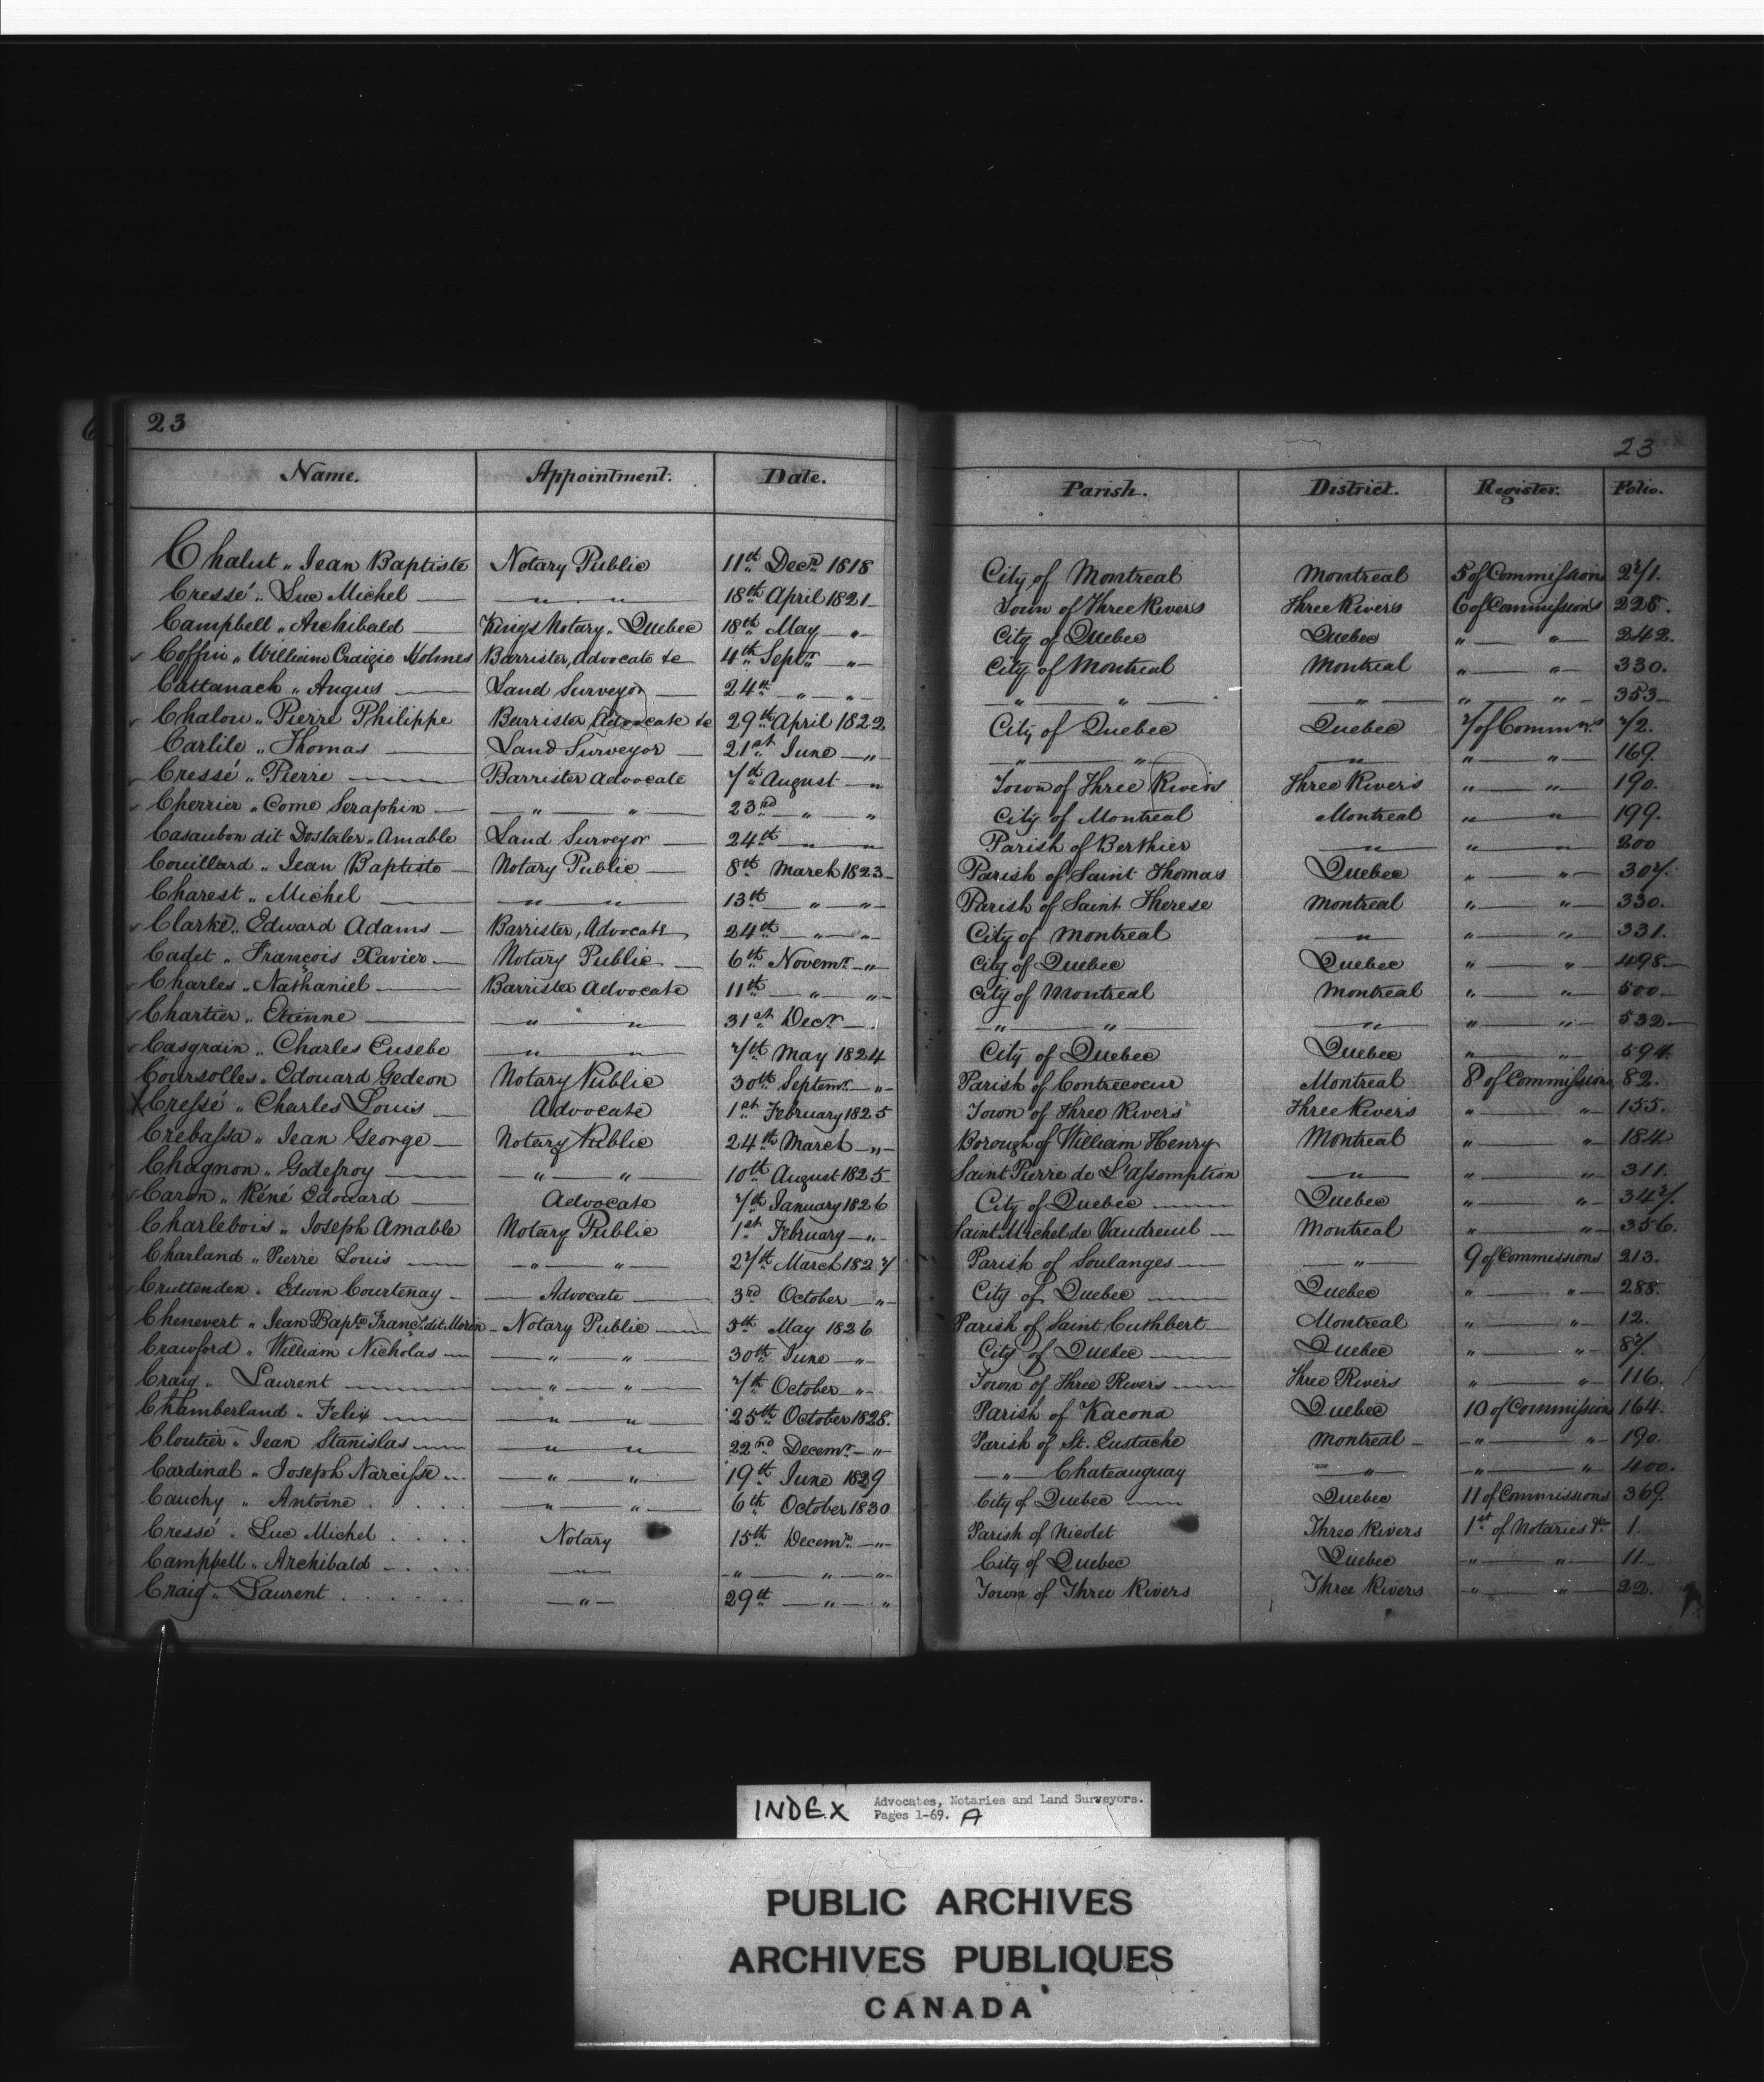 23
23
Name. Appointment. Date. Parish. District. Register. Folio.
Chalut „ Jean Baptiste Notary Public 11th Decr. 1818 City of Montreal Montreal 5 of Commissions 271.
Cressé „ Luc Michel — „ „ 18th April 1821 — Town of Three Rivers Three Rivers 6 of Commissions 228.
Campbell „ Archibald — Kings Notary „ Quebec 18th May — „ — City of Quebec Quebec „ — „ — 242.
Coffin „ William Craigie Holmes Barrister, Advocate &c 4th Septr. „ — City of Montreal Montreal „ — „ — 330.
Cattanach „ Angus — Land Surveyor — 24th „ — „ — „ — „ — „ — „ — „ — 353 —
Chalou „ Pierre Philippe Barrister Advocate &c 29th April 1822 City of Quebec Quebec 7 of Commns. 72.
Carlile „ Thomas — Land Surveyor — 21st June — „ — „ — „ — „ — „ — „ — 169.
Cressé „ Pierre — Barrister Advocate 7th August — „ Town of Three Rivers Three Rivers „ — „ — 190.
Cherrier „ Come Seraphin — „ — „ — 23rd — „ — „ City of Montreal Montreal „ — „ — 199.
Casaubon dit Dostaler „ Amable Land Surveyor — 24th — „ — „ Parish of Berthier — „ — „ — „ — 200
Couillard „ Jean Baptiste — Notary Public — 8th March 1823 — Parish of Saint Thomas Quebec „ — „ — 307.
Charest „ Michel — „ — „ — 13th — „ — „ — Parish of Saint Therese Montreal „ — „ — 330.
Clarke „ Edward Adams — Barrister, Advocate 24th — „ — „ — City of Montreal — „ — „ — „ — 331.
Cadet „ François Xavier — Notary Public — 6th Novemr. — „ — City of Quebec Quebec „ — „ 498 —
Charles „ Nathaniel — Barrister Advocate 11th — „ — „ — City of Montreal Montreal „ — „ — 500 —
Chartier „ Etienne — „ — „ — 31st Decr. — „ — „ — „ — „ — „ — „ — 532 —
Casgrain „ Charles Eusebe — „ — „ — 7th May 1824 City of Quebec Quebec „ — „ — 594.
Coursolles „ Edouard Gedeon Notary Public 30th Septemr. — „ — Parish of Contrecoeur Montreal 8 of Commissions 82.
X Cressé „ Charles Louis — Advocate 1st February 1825 Town of Three Rivers Three Rivers „ — „ — 155.
Crebassa „ Jean George — Notary Public 24th March — „ — Borough of William Henry Montreal „ — „ — 184
Chagnon „ Godefroy — „ — „ — 10th August 1825 — Saint Pierre de L'assomption — „ — „ — „ — 311.
Caron „ Réné Edouard — Advocate 7th January 1826 City of Quebec — Quebec „ — „ — 347.
Charlebois „ Joseph Amable Notary Public 1st February — „ — Saint Michel de Vaudreuil — Montreal „ — „ — 356.
Charland „ Pierre Louis — „ — „ — 27th March 1827 Parish of Soulanges — „ — 9 of Commissions 213.
Cruttenden „ Edwin Courtenay — Advocate — 3rd October — „ — City of Quebec — Quebec „ — „ — 288.
Chenevert „ Jean Bapte. Franç. dit Morin — Notary Public — 5th May 1826 Parish of Saint Cuthbert — Montreal „ — „ — 12.
Crawford „ William Nicholas — „ — „ — 30th June — „ — City of Quebec — Quebec „ — „ — 87.
Craig „ Laurent — „ — „ — 7th October „ — Town of Three Rivers — Three Rivers „ — „ — 116.
Chamberland „ Felix — „ — „ — 25th October 1828. Parish of Kacona Quebec 10 of Commissions 164.
Cloutier „ Jean Stanislas — „ — „ — 22nd Decemr. — „ — Parish of St. Eustache Montreal — „ — „ — 190.
Cardinal „ Joseph Narcisse ... — „ — „ — 19th June 1829 — „ — Chateauguay — „ — „ — „ — 400.
Cauchy „ Antoine . . . . . — „ — „ — 6th October 1830 City of Quebec — Quebec 11 of Commissions 369.
Cressé „ Luc Michel . . . . Notary 15th Decemr. — „ — Parish of Nicolet Three Rivers 1st of Notaries &c. 1.
Campbell „ Archibald . . . . — „ — „ — „ — „ — City of Quebec Quebec — „ — „ — 11 —
Craig „ Laurent . . . . . . — „ — 29th — „ — „ Town of Three Rivers Three Rivers — „ — „ — 22.
INDEX Advocates, Notaries and Land Surveyors.
Pages 1-69. A
PUBLIC ARCHIVES
ARCHIVES PUBLIQUES
CANADA